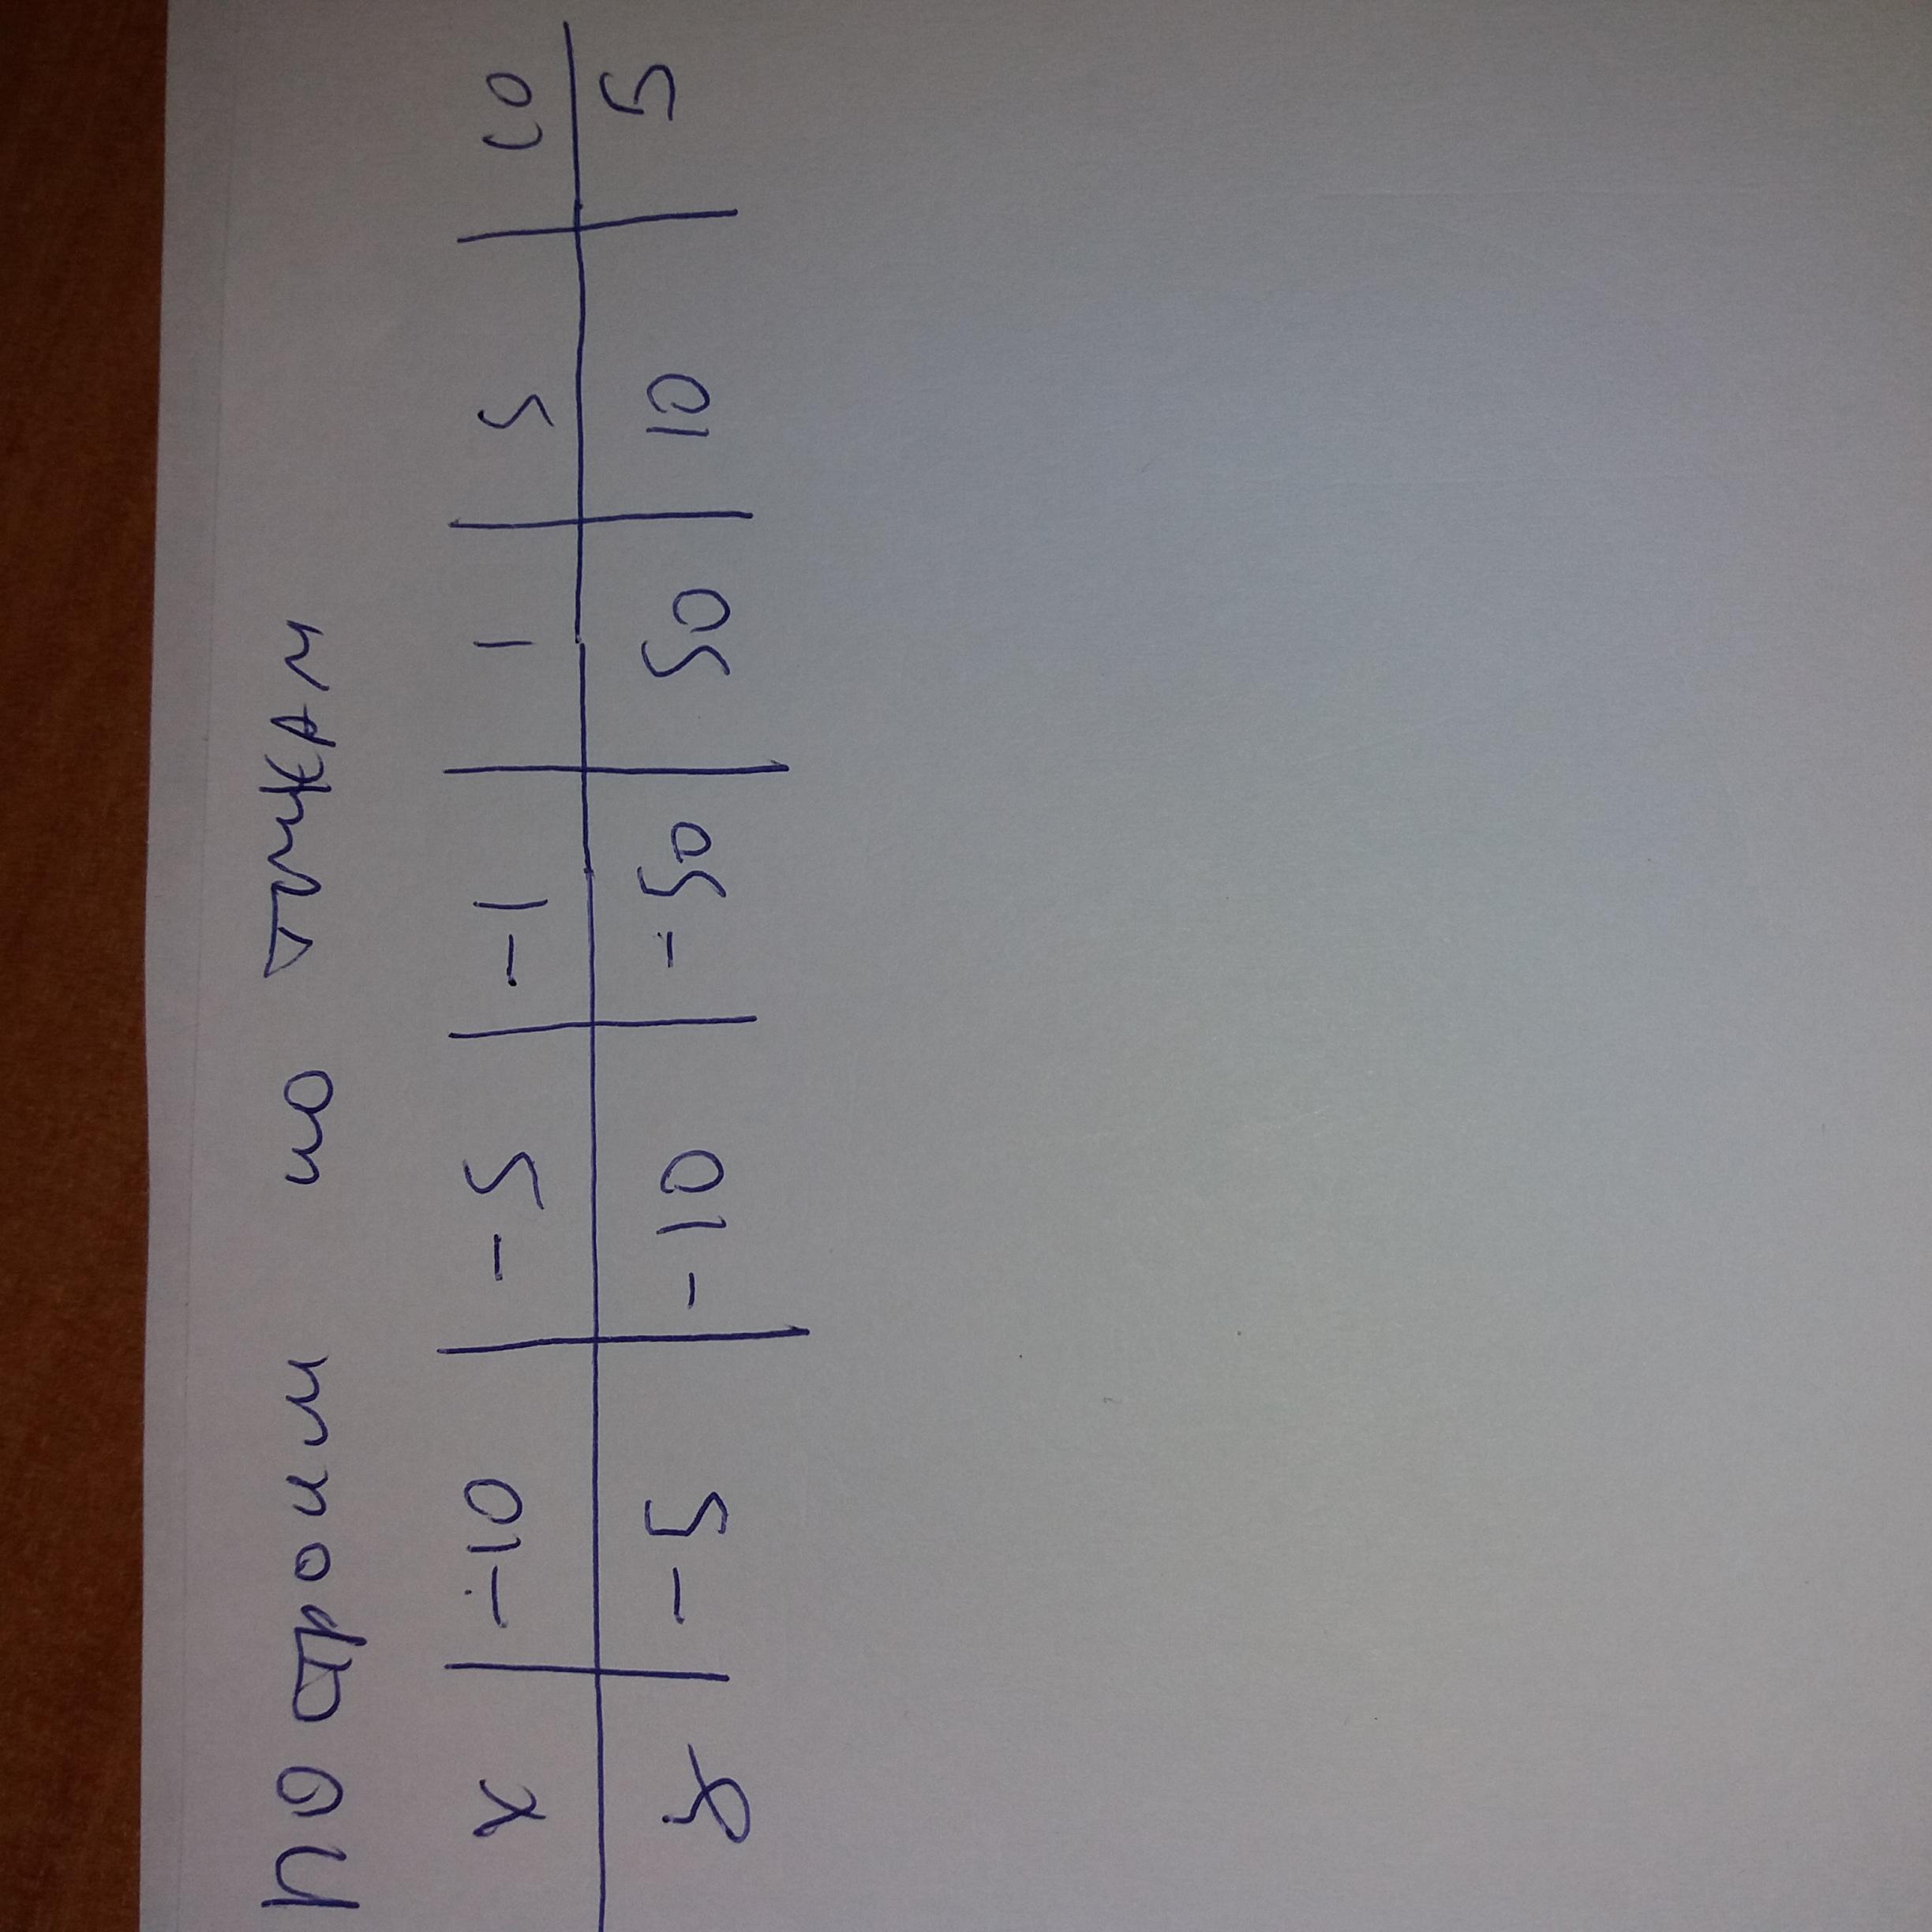 Построим по точкам
x | -10 | -5 | -1 | 1 | 5 | 10
y | -5 | -10 | -50 | 50 | 10 | 5